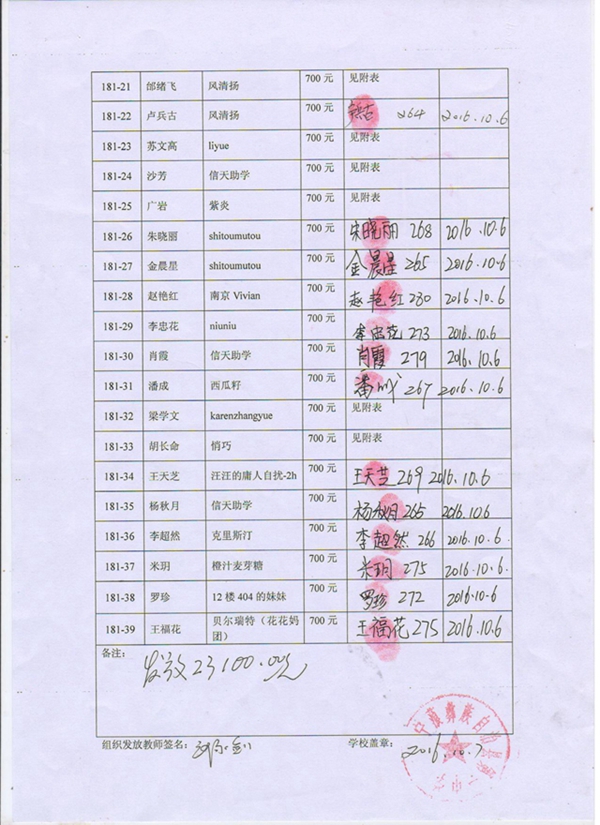 181-21 邰绪飞 风清扬 700 元 见附表
181-22 卢兵古 风清扬 700 元 264 2016.10.6
181-23 苏文高 liyue 700 元 见附表
181-24 沙芳 信天助学 700 元 见附表
181-25 广岩 紫炎 700 元 见附表
181-26 朱晓丽 shitoumutou 700 元 宋晓丽 268 2016.10.6
181-27 金晨星 shitoumutou 700 元 金晨星 265 2016.10.6
181-28 赵艳红 南京 Vivian 700 元 赵艳红 280 2016.10.6
181-29 李忠花 niuniu 700 元 李忠花 273 2016.10.6
181-30 肖霞 信天助学 700 元 肖霞 279 2016.10.6
181-31 潘成 西瓜籽 700 元 潘成 267 2016.10.6
181-32 梁学文 karenzhangyue 700 元 见附表
181-33 胡长命 悄巧 700 元 见附表
181-34 王天芝 汪汪的庸人自扰-2h 700 元 王天芝 269 2016.10.6
181-35 杨秋月 信天助学 700 元 杨秋月 265 2016.10.6
181-36 李超然 克里斯汀 700 元 李超然 266 2016.10.6.
181-37 米玥 橙汁麦芽糖 700 元 米玥 275 2016.10.6
181-38 罗珍 12 楼 404 的妹妹 700 元 罗珍 272 2016.10.6
181-39 王福花 贝尔瑞特（花花妈团） 700 元 王福花 275 2016.10.6
备注：
发放23100.00元
组织发放教师签名： 学校盖章： 2016.10.7